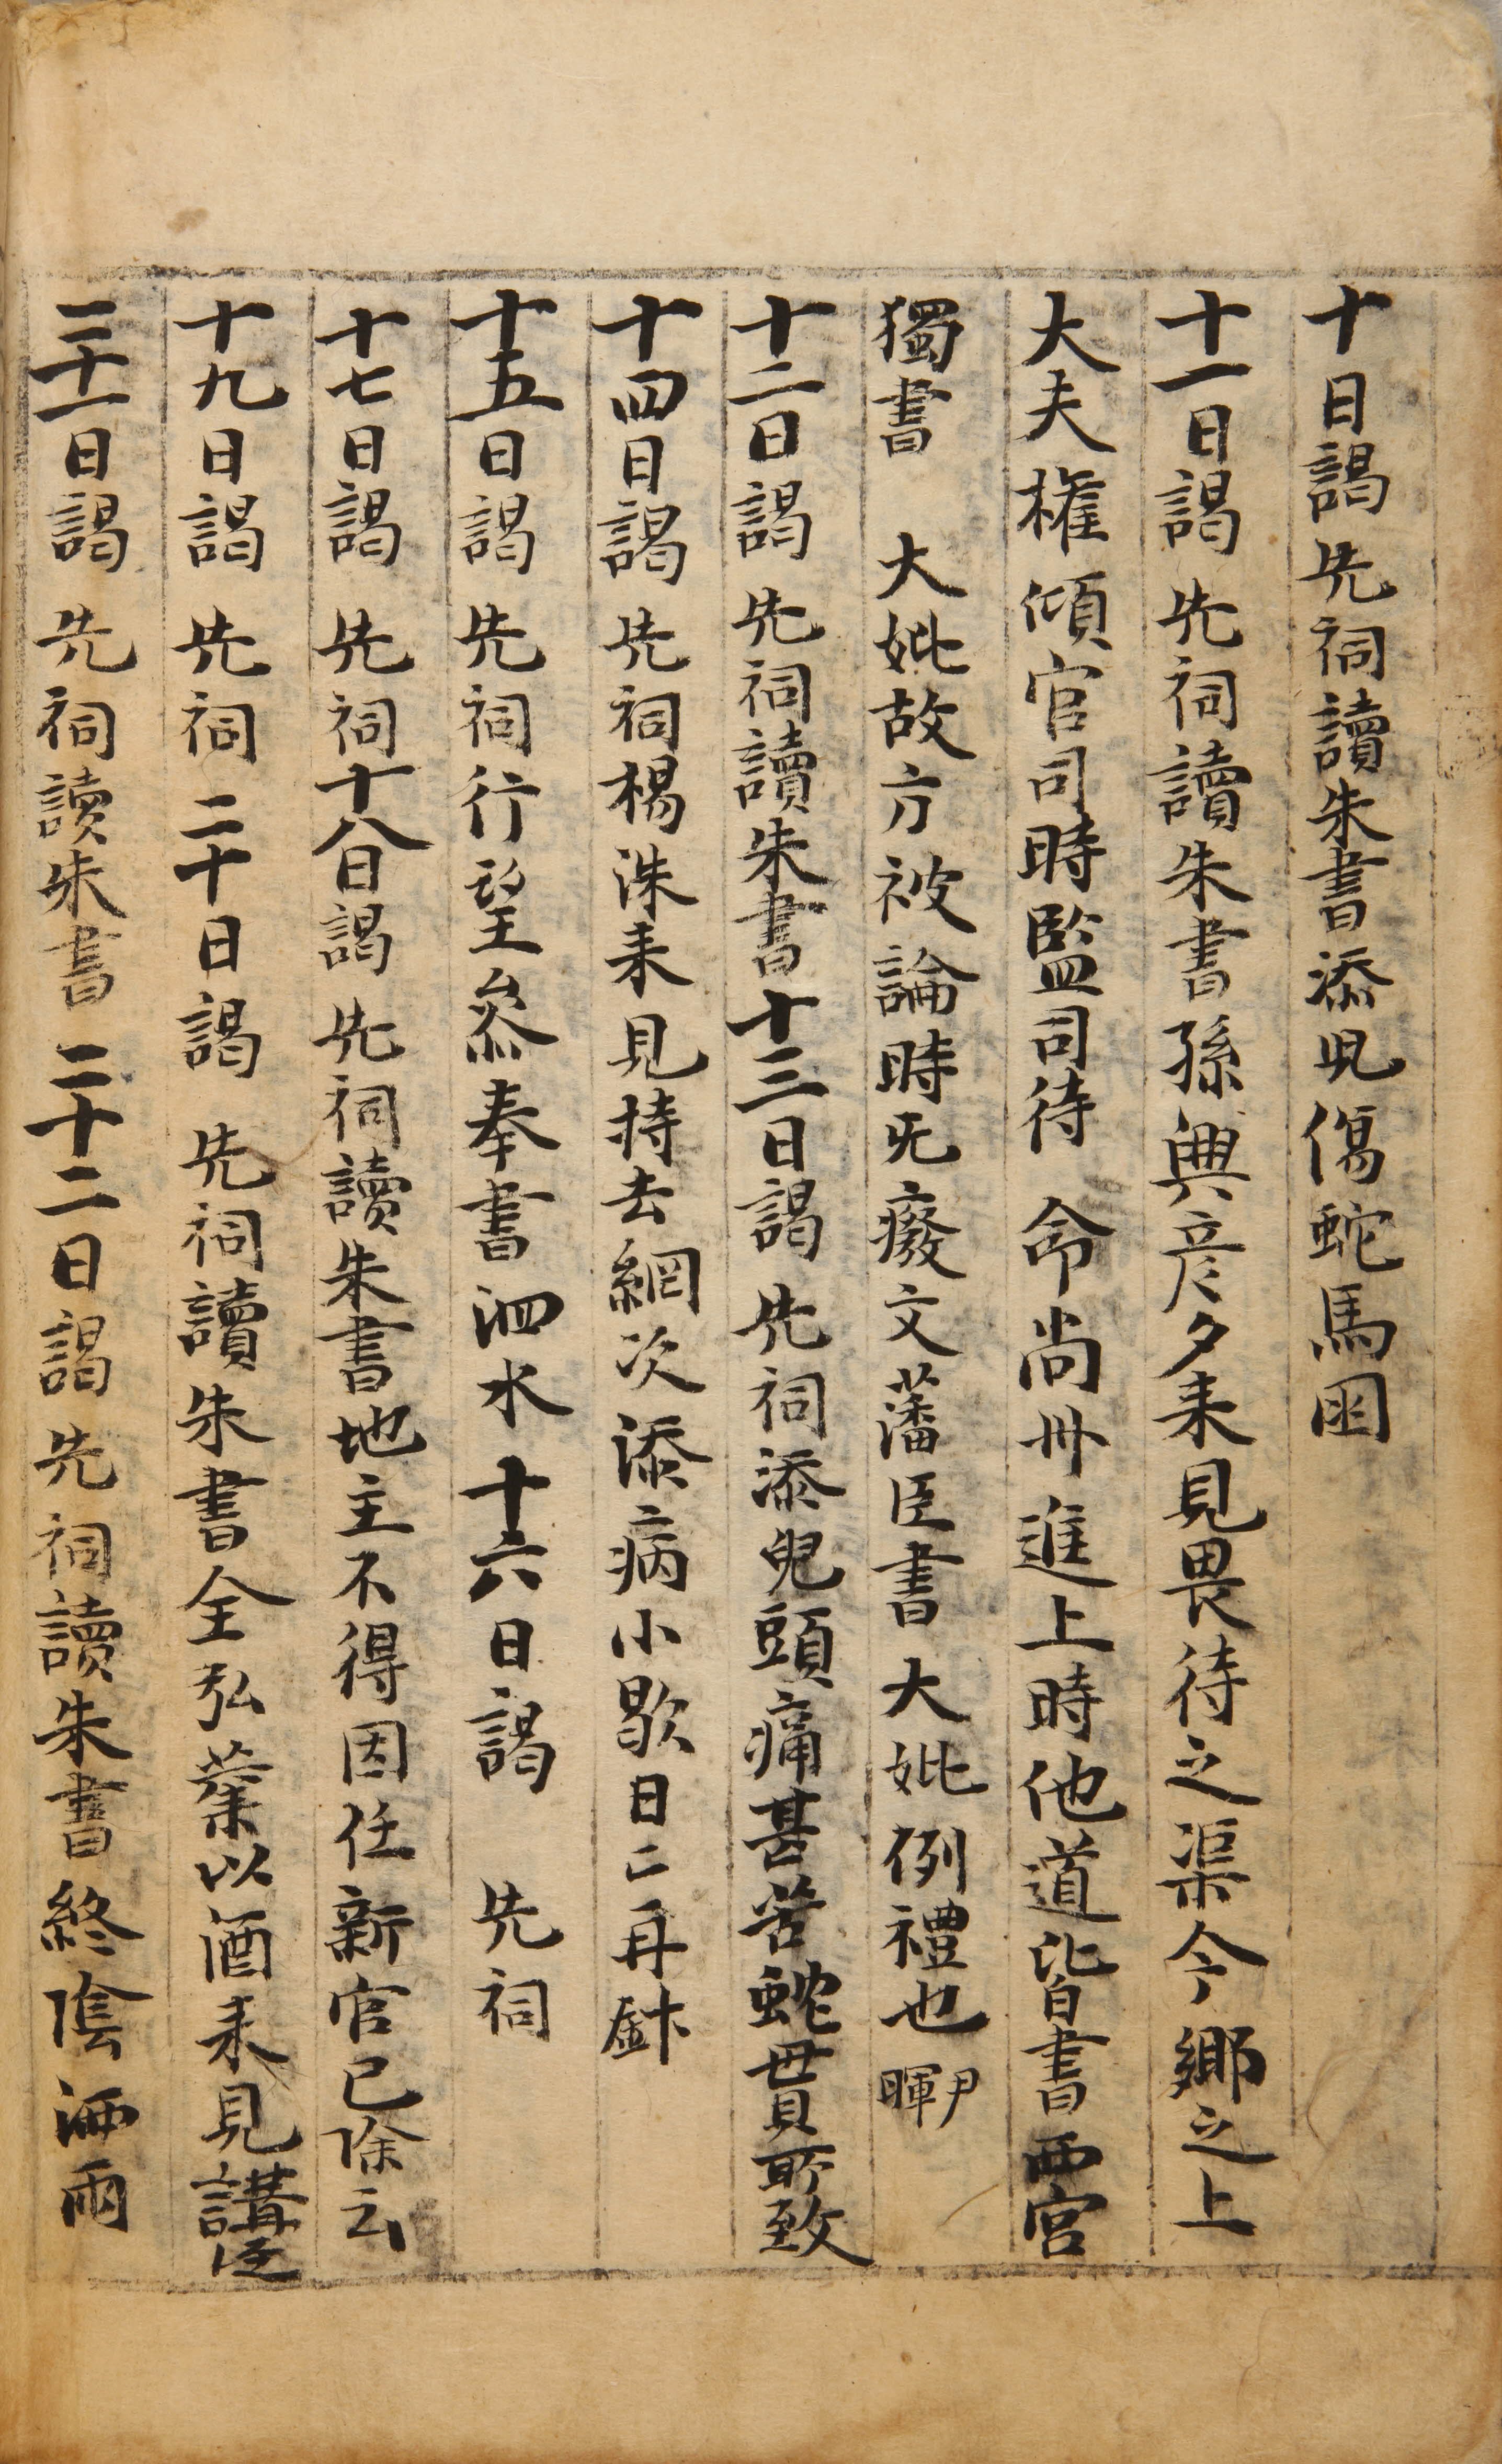 十日謁 先祠讀朱書添兒傷蛇馬困
十一日謁 先祠讀朱書孫興彦夕来見畏待之渠今鄉之上
大夫權傾官司時監司待 命尚州進上時他道皆書西宮
獨書 大妣故方被論時旡癈文藩臣書大妣例禮也 尹暉
十二日謁 先祠讀朱書十三日謁 先祠添兒頭痛甚苦蛇貫所致
十四日謁 先祠楊洙来見持去網次添病小歇日二再
十五日謁 先祠行望叅奉書泗水十六日謁 先祠
十七日謁 先祠十八日謁 先祠讀朱書地主不得因任新官已除云
十九日謁 先祠 二十日謁 先祠讀朱書全弘業以酒来見講
二十一日謁 先祠讀朱書 二十二日謁 先祠讀朱書終陰洒雨